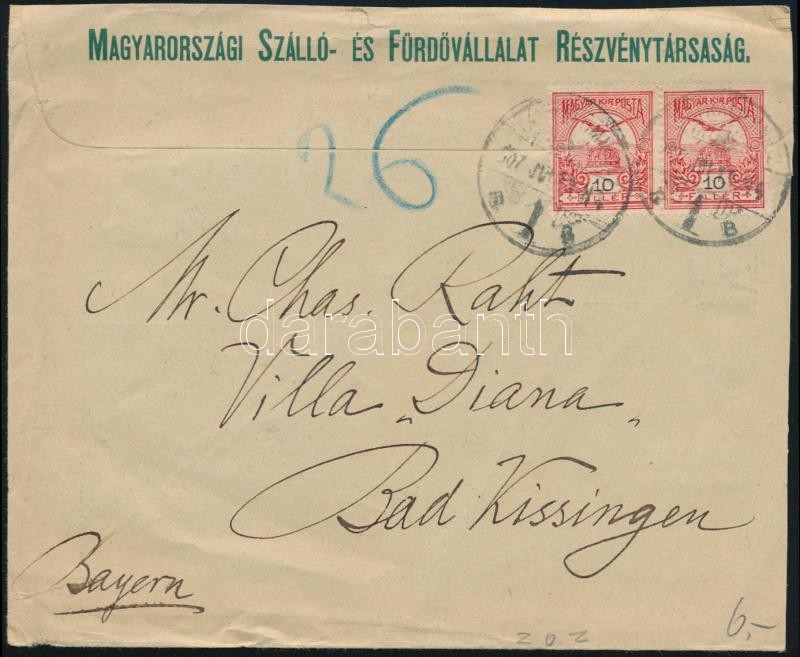 MAGYARORSZÁGI SZÁLLÓ- ÉS FÜRDŐVÁLLALAT RÉSZVÉNYTÁRSASÁG.
26
MAGYAR KIR. POSTA
10
FILLÉR
MAGYAR KIR. POSTA
10
FILLÉR
B
B
Mr. Chas. Raht
darabanth
Villa „Diana„
Bad Kissingen
Bayern
202
6,-